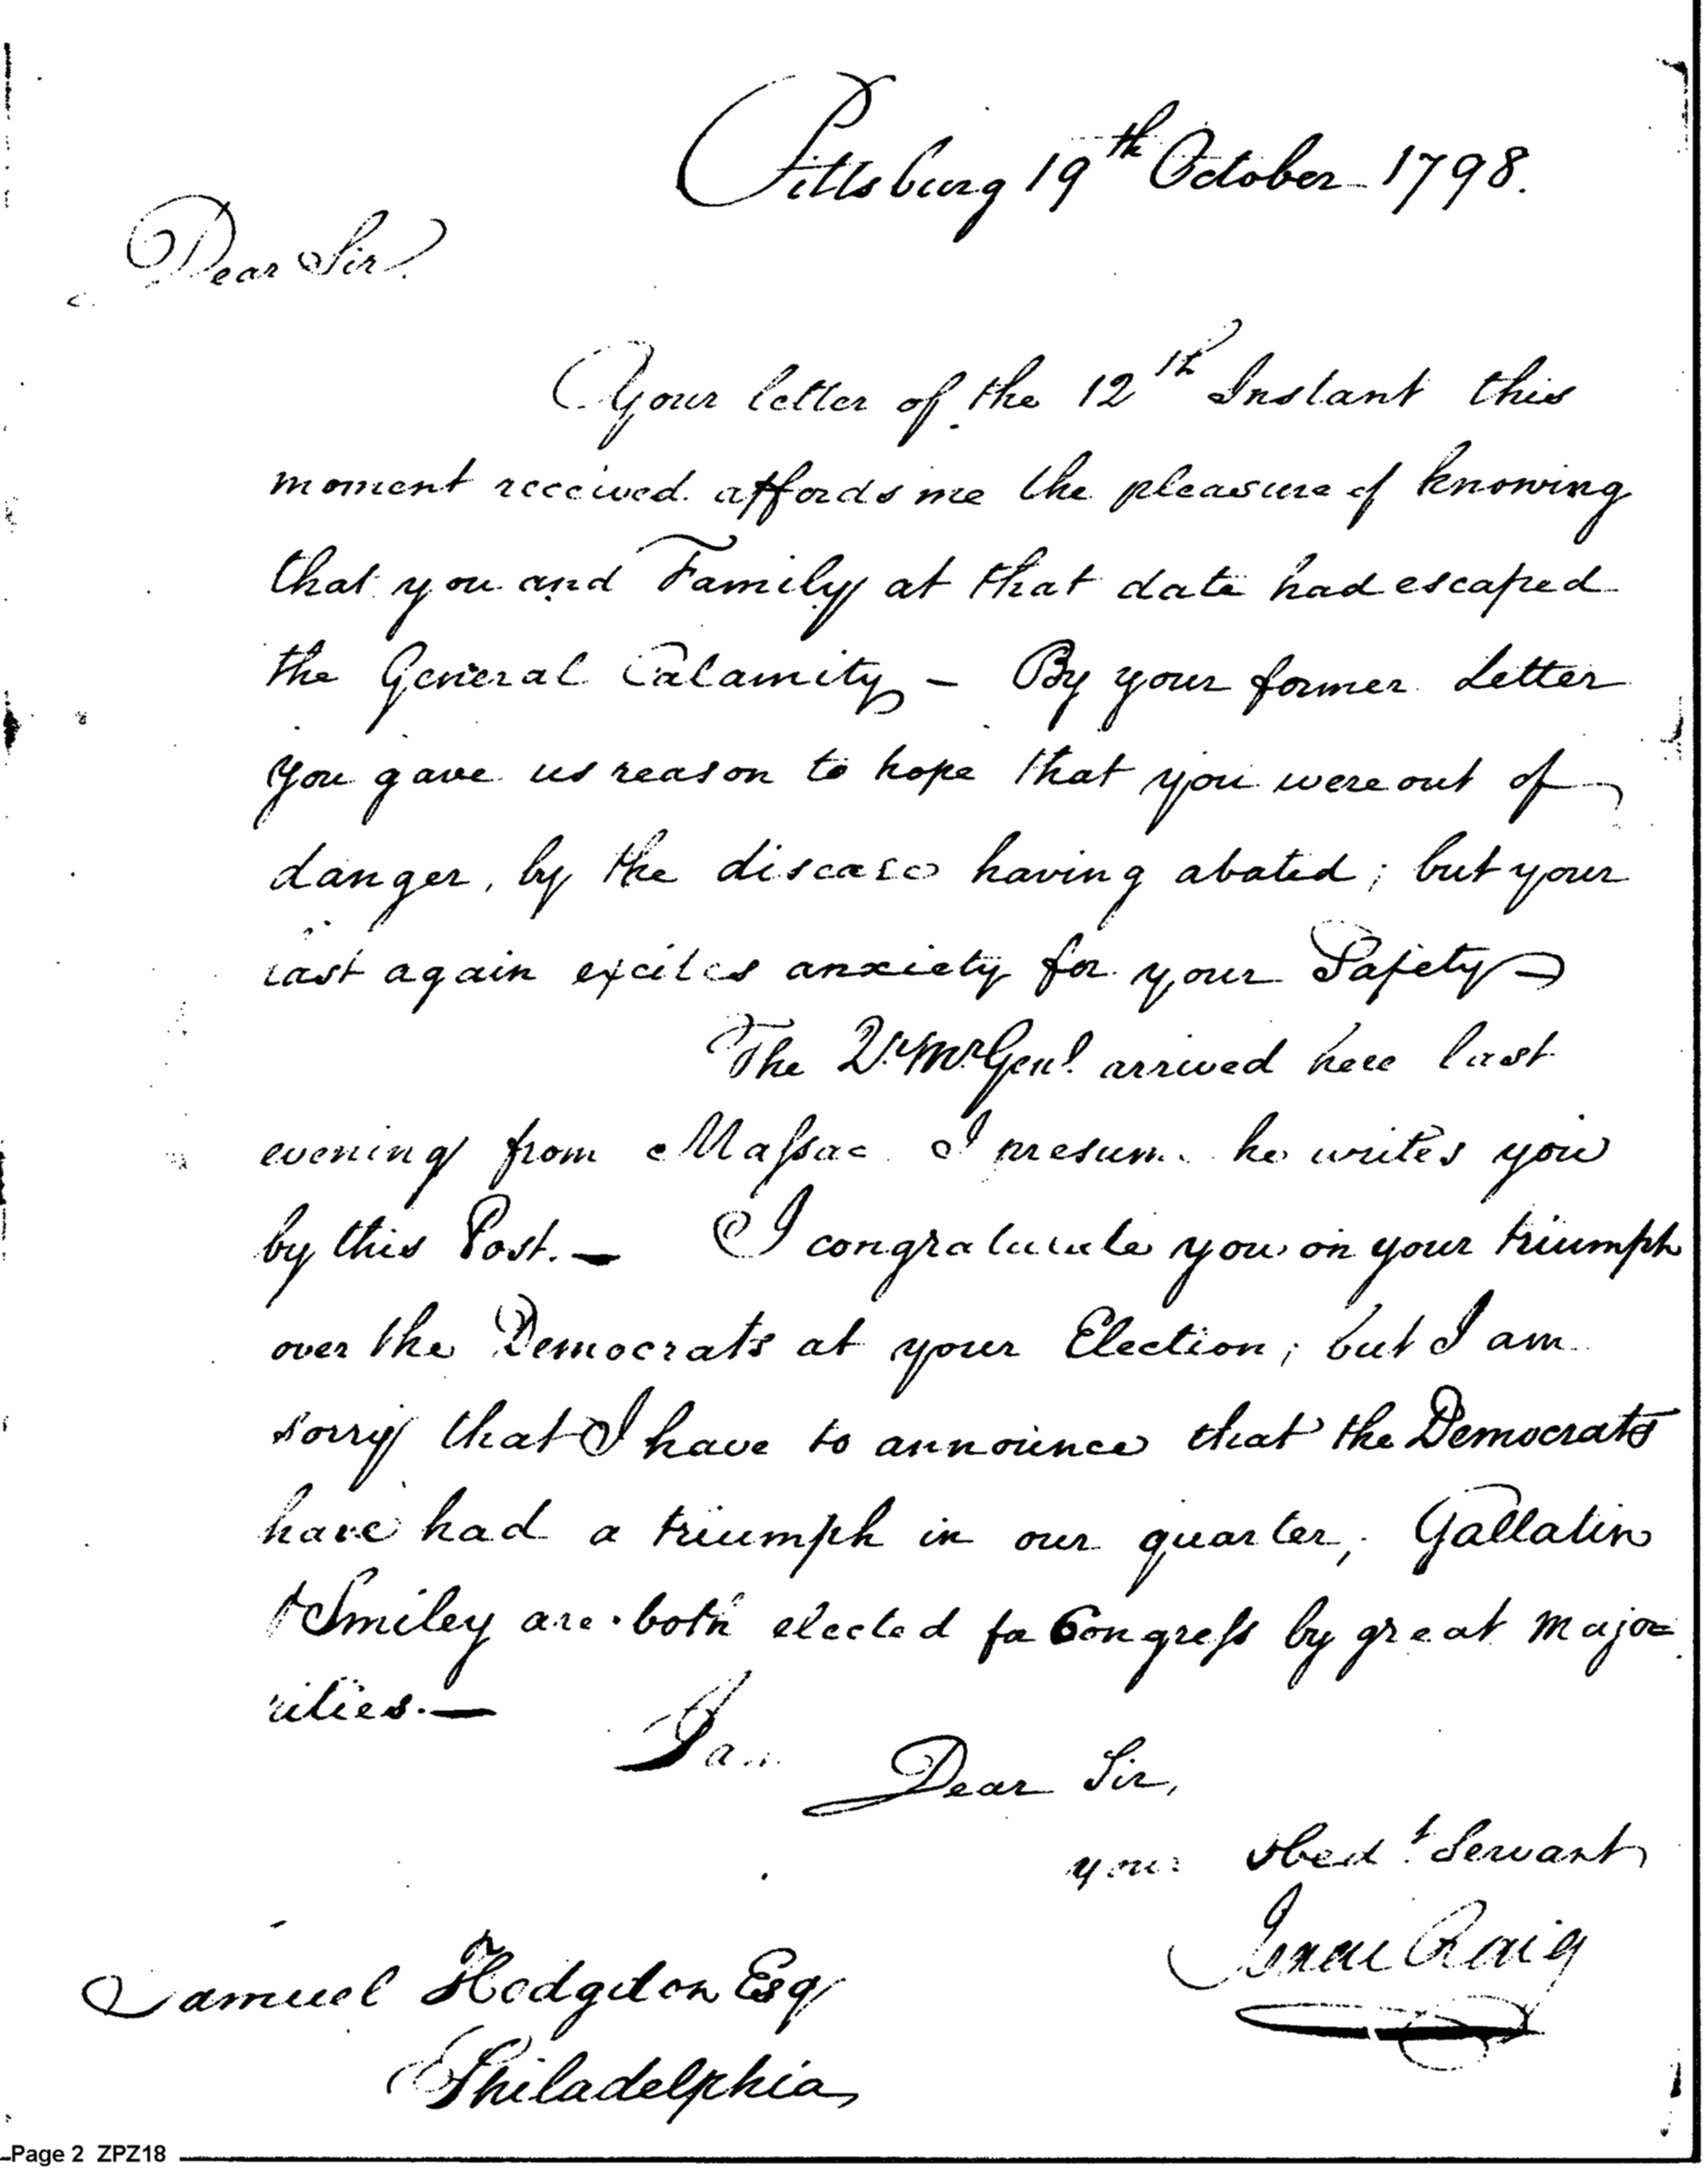 Pittsburg 19th October 1798.
Dear Sir.
Your letter of the 12th Instant this
moment received affords me the pleasure of knowing
that you and Family at that date had escaped
the General Calamity – By your former Letter
you gave us reason to hope that you were out of
danger, by the disease having abated; but your
last again excites anxiety for your Safety –
The Qr. Mr. Genl. arrived here last
evening from Massac I presume he writes you
by this Post. – I congratulate you on your triumph
over the Democrats at your Election; but I am
sorry that I have to announce that the Democrats
have had a triumph in our quarter, Gallatin
& Smiley are both elected to Congress by great majo=
rities. –
I am
Dear Sir,
your obedt. Servant
Isaac Craig
Samuel Hodgdon Esq
Philadelphia
Page 2 ZPZ18